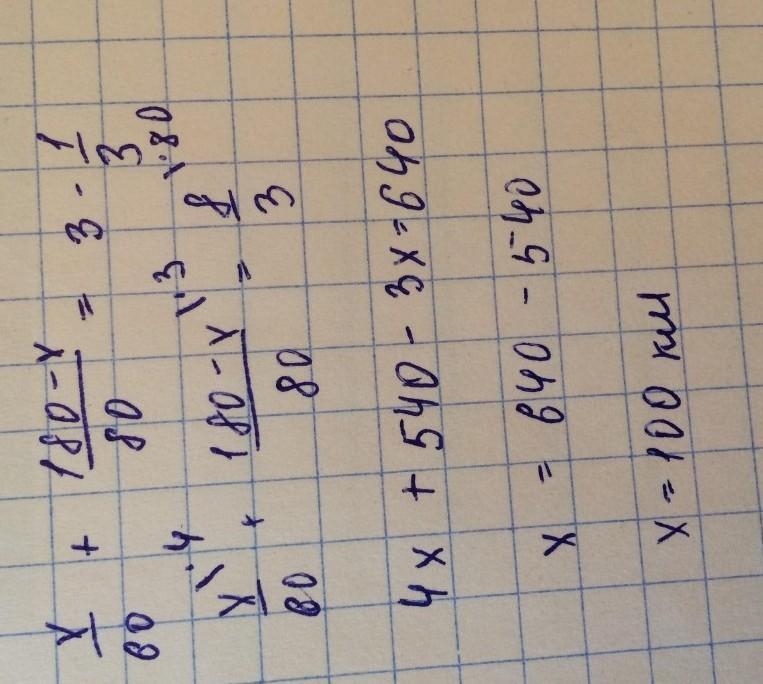 x/60 + 180-x/80 = 3 - 1/3
x/60 \·4 + 180-x/80 \·3 = 8/3 \·80
4x + 540 - 3x = 640
x = 640 - 540
x = 100 км